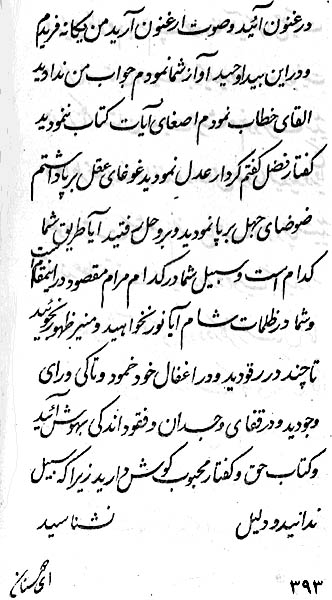 در غنون آئید و صوت ارغنون آرید من یگانه فریدم
و در این بیدا وحید آواز شما نمودم جواب من ندادید
القای خطاب نمودم اصغای آیات کتاب ننمودید
گفتار فضل گفتم کردار عدل نمودید غوغای عقل برپا داشتم
ضوضای جهل برپا نمودید و بر وحل رفتید آیا طریق شما
کدام است و سبیل شما در کدام مرام مقصود در اینمقام است
و شما در ظلمات شام آیا نور نخواهید و منیر ظهور نجوئید
تا چند در رقودید و در اغفال خود خمود و تا کی ورای
وجودید و در قفای وجدان و فقود اندکی بهوش آئید
و کتاب حق و گفتار محبوب گوش دارید زیرا که سبیل
ندانید و دلیل نشناسید
ای همسنان
۳۹۳